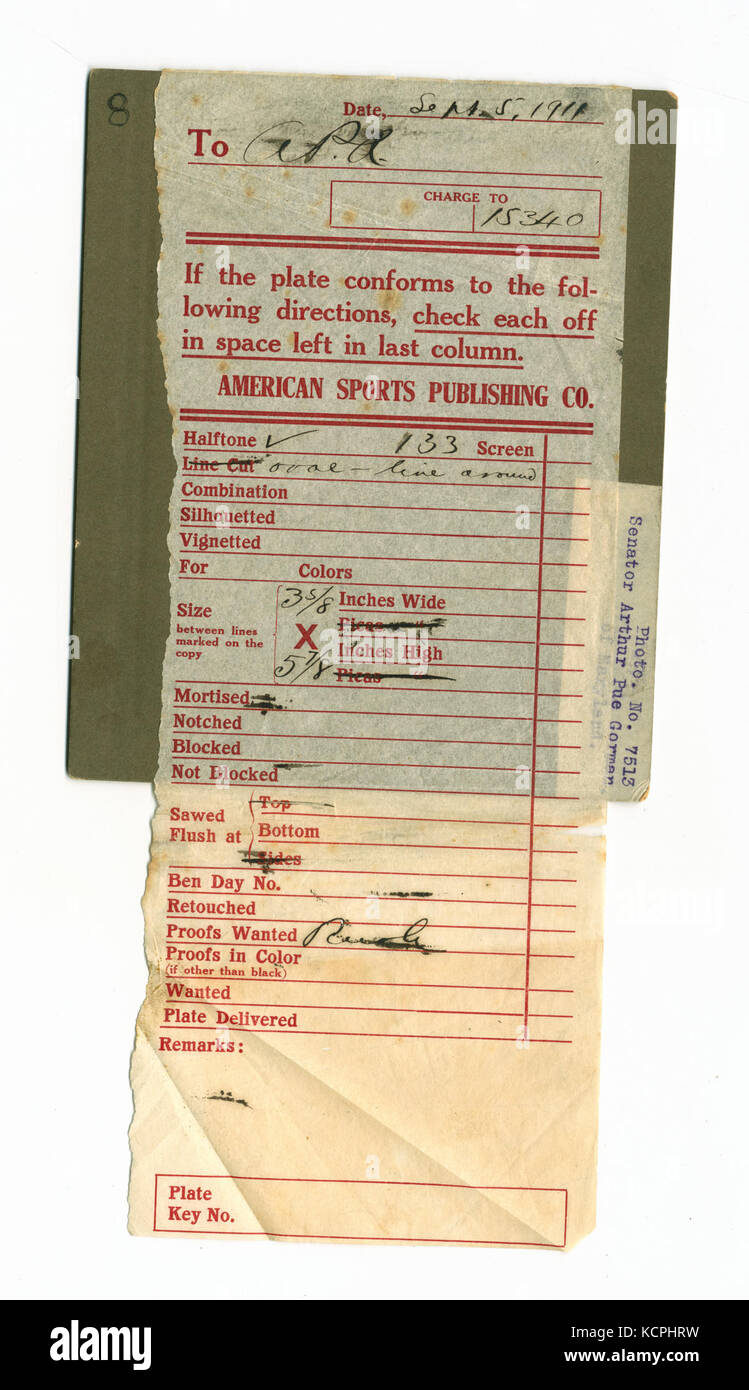 8
Date, Sept. 5, 1911
To
CHARGE TO
15340
If the plate conforms to the fol-
lowing directions, check each off
in space left in last column.
AMERICAN SPORTS PUBLISHING CO.
Halftone ✓ 133 Screen
Line Cut oval - line around
Combination
Silhouetted
Vignetted
For Colors
Size
between lines
marked on the
copy
3 5/8 Inches Wide
Picas
X
Inches High
5 7/8 Picas
Mortised
Notched
Blocked
Not Blocked
Sawed
Flush at
Top
Bottom
Sides
Ben Day No.
Retouched
Proofs Wanted
Proofs in Color
(if other than black)
Wanted
Plate Delivered
Remarks:
Plate
Key No.
Photo. No. 7513
Senator Arthur Pue Gorman
of Maryland.
alamy
alamy
Image ID: KCPHRW
www.alamy.com